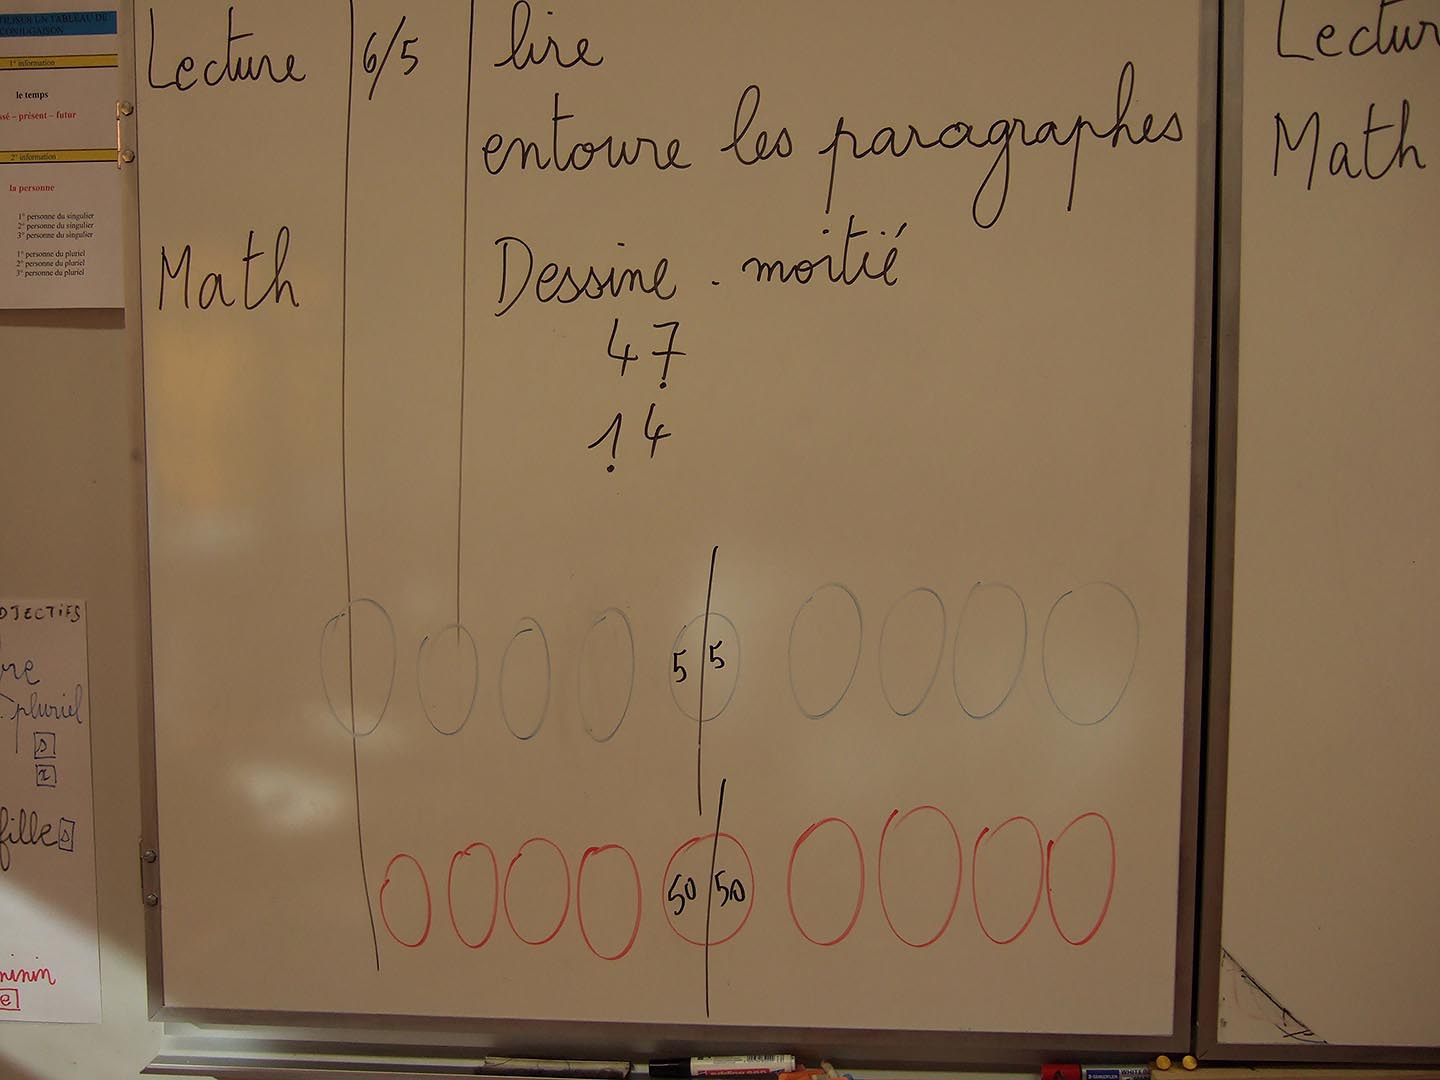 TILISER UN TABLEAU DE
CONJUGAISON
1° information
le temps
ssé – présent – futur
2° information
la personne
1° personne du singulier
2° personne du singulier
3° personne du singulier
1° personne du pluriel
2° personne du pluriel
3° personne du pluriel
Lecture 6/5 lire
entoure les paragraphes
Math Dessine . moitié
47
14
5 5
50 50
Lectur
Math
DJECTIFS
pluriel
s
x
fille s
minin
e